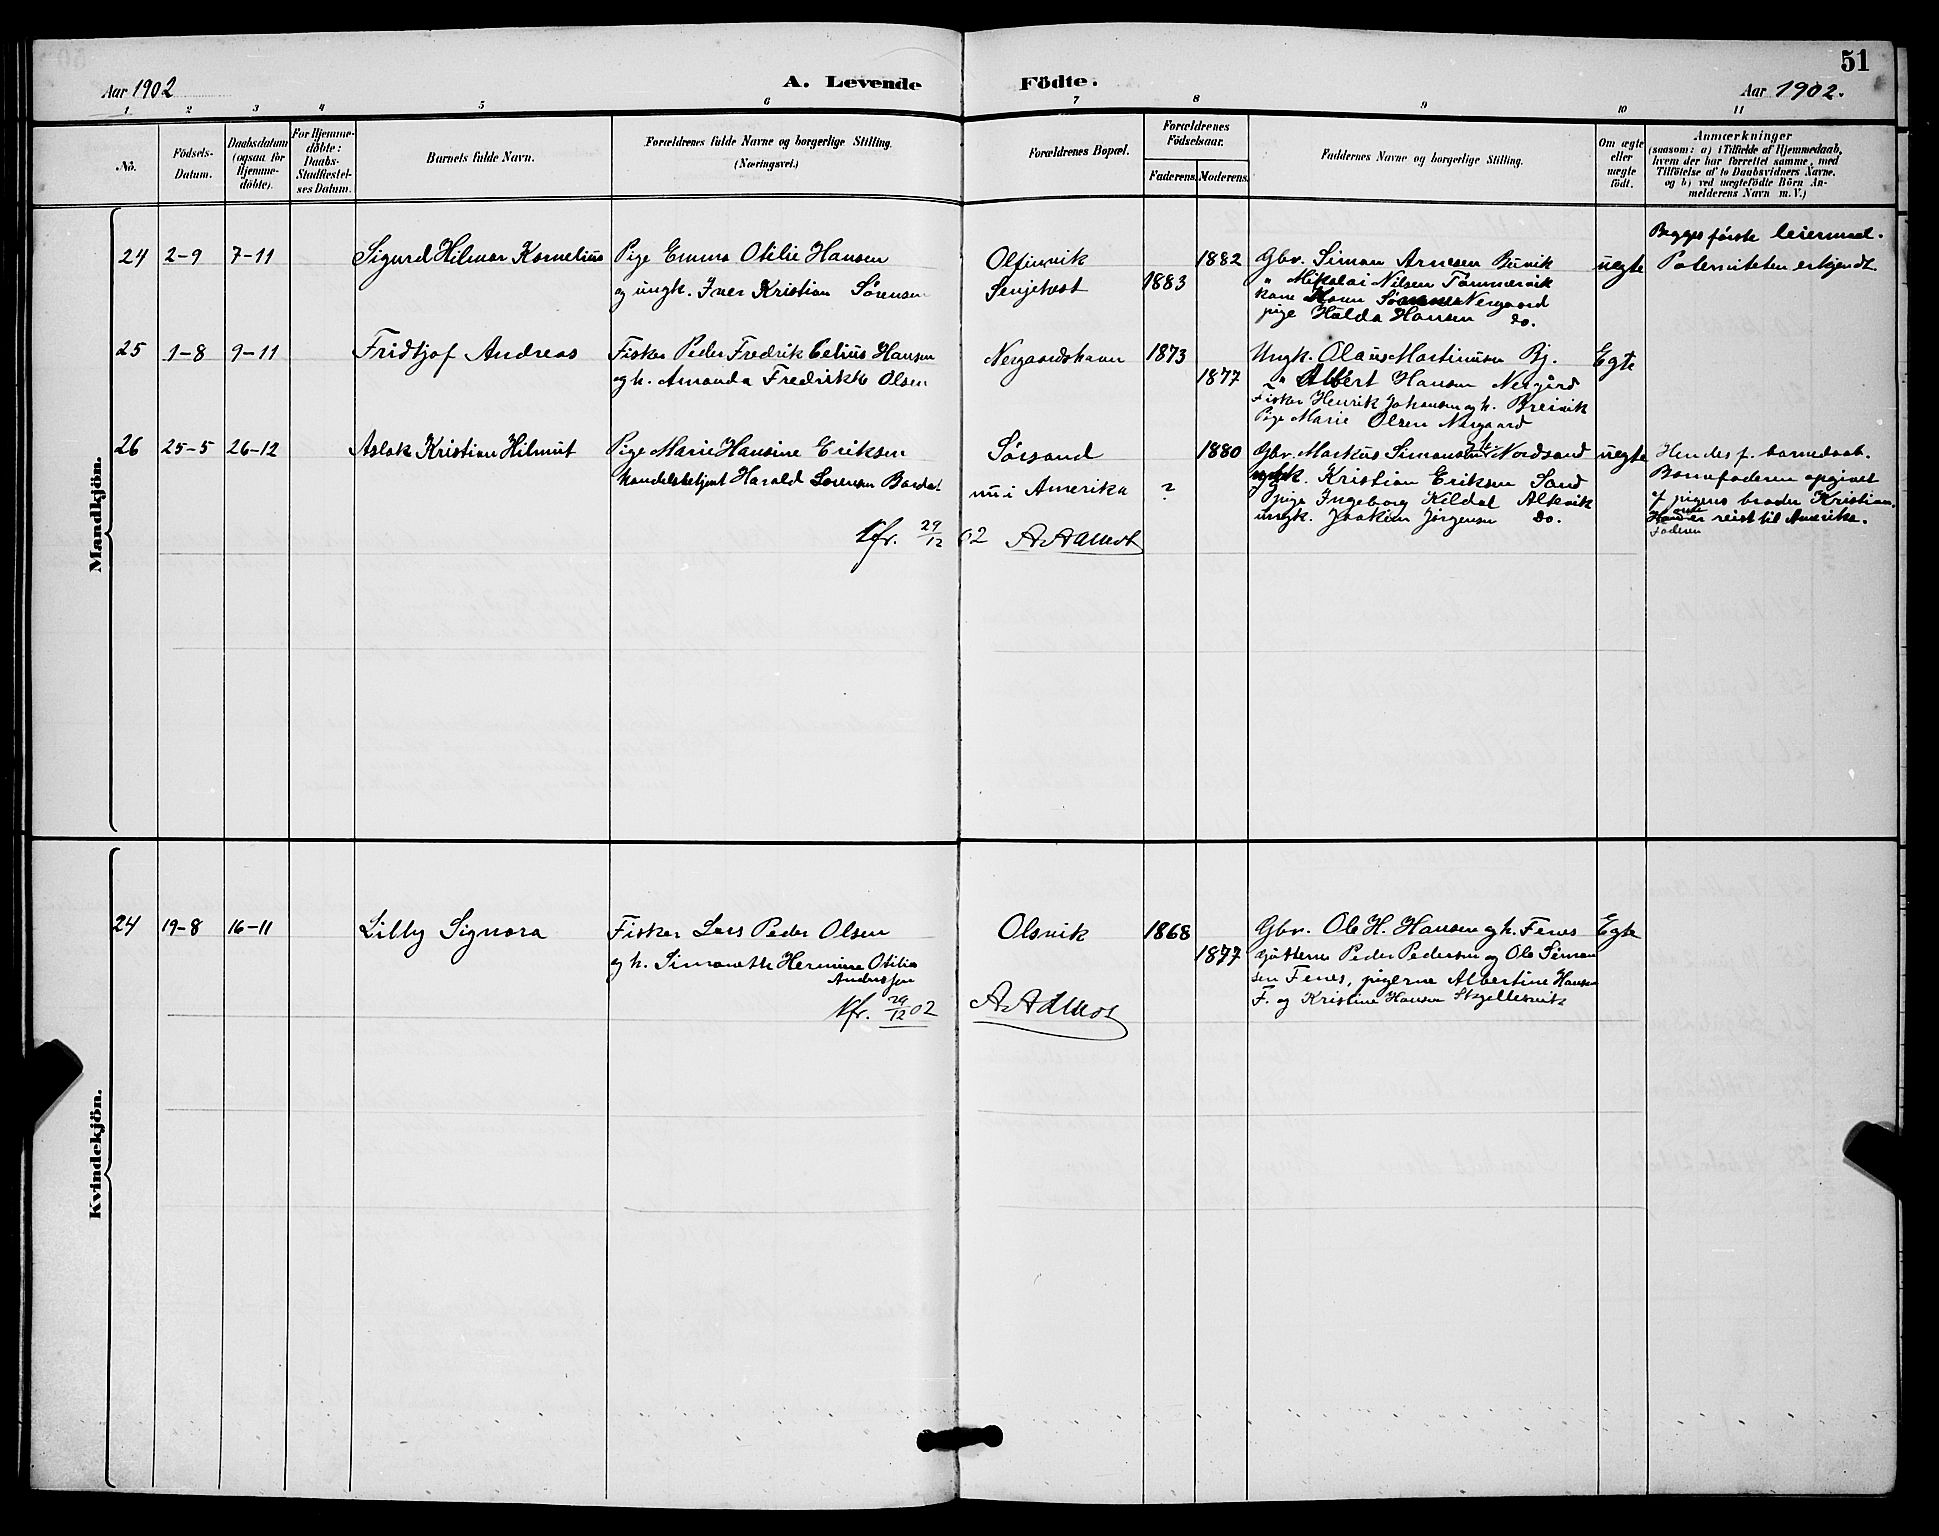 51
Aar 1902 A. Levende Födte. Aar 1902.
1 2 3 4 5 6 7 8 9 10 11
No.
Födsels-
Datum.
Daabsdatum
(ogsaa for
Hjemme-
döbte).
For Hjemme-
döbte:
Daabs-
Stadfæstel-
ses Datum.
Barnets fulde Navn.
Forældrenes fulde Navne og borgerlige Stilling.
(Næringsvei.)
Forældrenes Bopæl.
Forældrenes
Födselsaar.
Faderens. Moderens.
Faddernes Navne og borgerlige Stilling.
Om ægte
eller
uægte
födt.
Anmærkninger
(saasom: a) i Tilfælde af Hjemmedaab,
hvem der har forrettet samme, med
Tilföielse af to Daabsvidners Navne.
og b) ved uægtefödte Börn An-
melderens Navn m. V.)
Mandkjön.
24 2-9 7-11 Sigurd Hilmar Kornelius
Pige Emma Otilie Hansen
og ungk. Iver Kristian Sørensen
Senjehest
1883
1882
Gbr. Simon Arnesen Buvik
" Nikolai Nilsen Tømmervik
kone Nergaard
pige Hulda Hansen do.
uegte
Begges første leiermaal.
Paterniteten erkjendt.
25 1-8 9-11 Fridtjof Andreas
Fisker Peder Fredrik Celius Hansen
og h. Amanda Fredrikke Olsen
Nergaardshavn
1873
1877
Ungk. Olaus Martinusen Bj.
" Albert Hansen Nergård
Fisker Henrik Johansen og h. Breivik
Pige Marie Olsen Nergaard
Egte
26 25-5 26-12 Aslak Kristian Hilmut
Pige Marie Hansine Eriksen
Handelsbetjent Harald Sørensen
Sørsand
nu i Amerika
?
1880
Gbr. Markus Simonsen Nordsand
ungk. Kristian Eriksen Sand
pige Ingeborg Kildal Alkvik
ungk. Joakim Jørgensen do.
uegte
Hendes f. barnedaab.
Barnefaderen opgivet
af pigens broder Kristian.
er reist til Amerika.
Faderen
Kfr. 29/12 02 A Aamot
Kvindekjön.
24 19-8 16-11 Lilly Signora
Fisker Lars Peder Olsen
og h. Hermine Otilie
Andersen
Olsvik
1868
1877
Gbr. Ole H. Hansen og h. Fenes
gutterne Peder Pedersen og Ole Simon
sen Fenes, pigerne Albertine Hansen
F. og Kristine Hansen
Egte
Kfr. 29/12 02 A Aamot